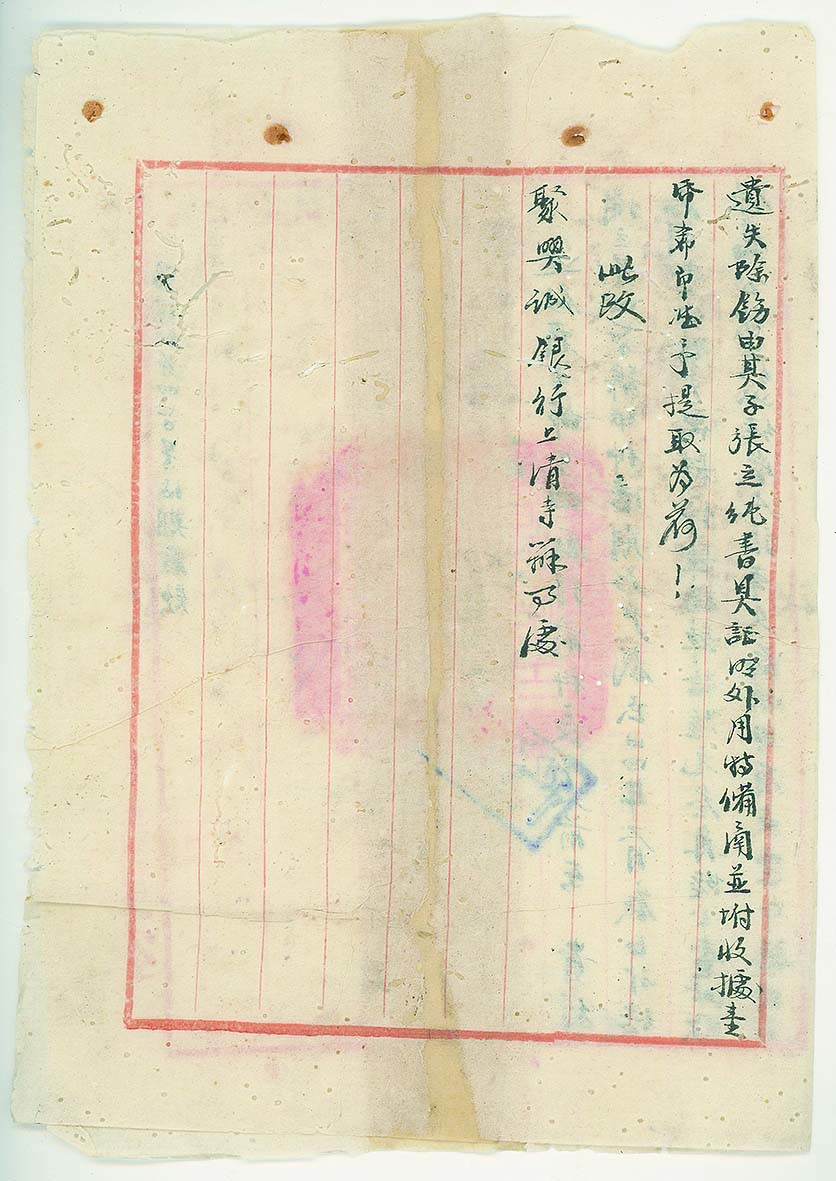 遺失除飭由其子張立純書具証明外用特備函並坿收據壹
帋希即准予提取为荷！
此致
聚興誠銀行上清寺辦事處